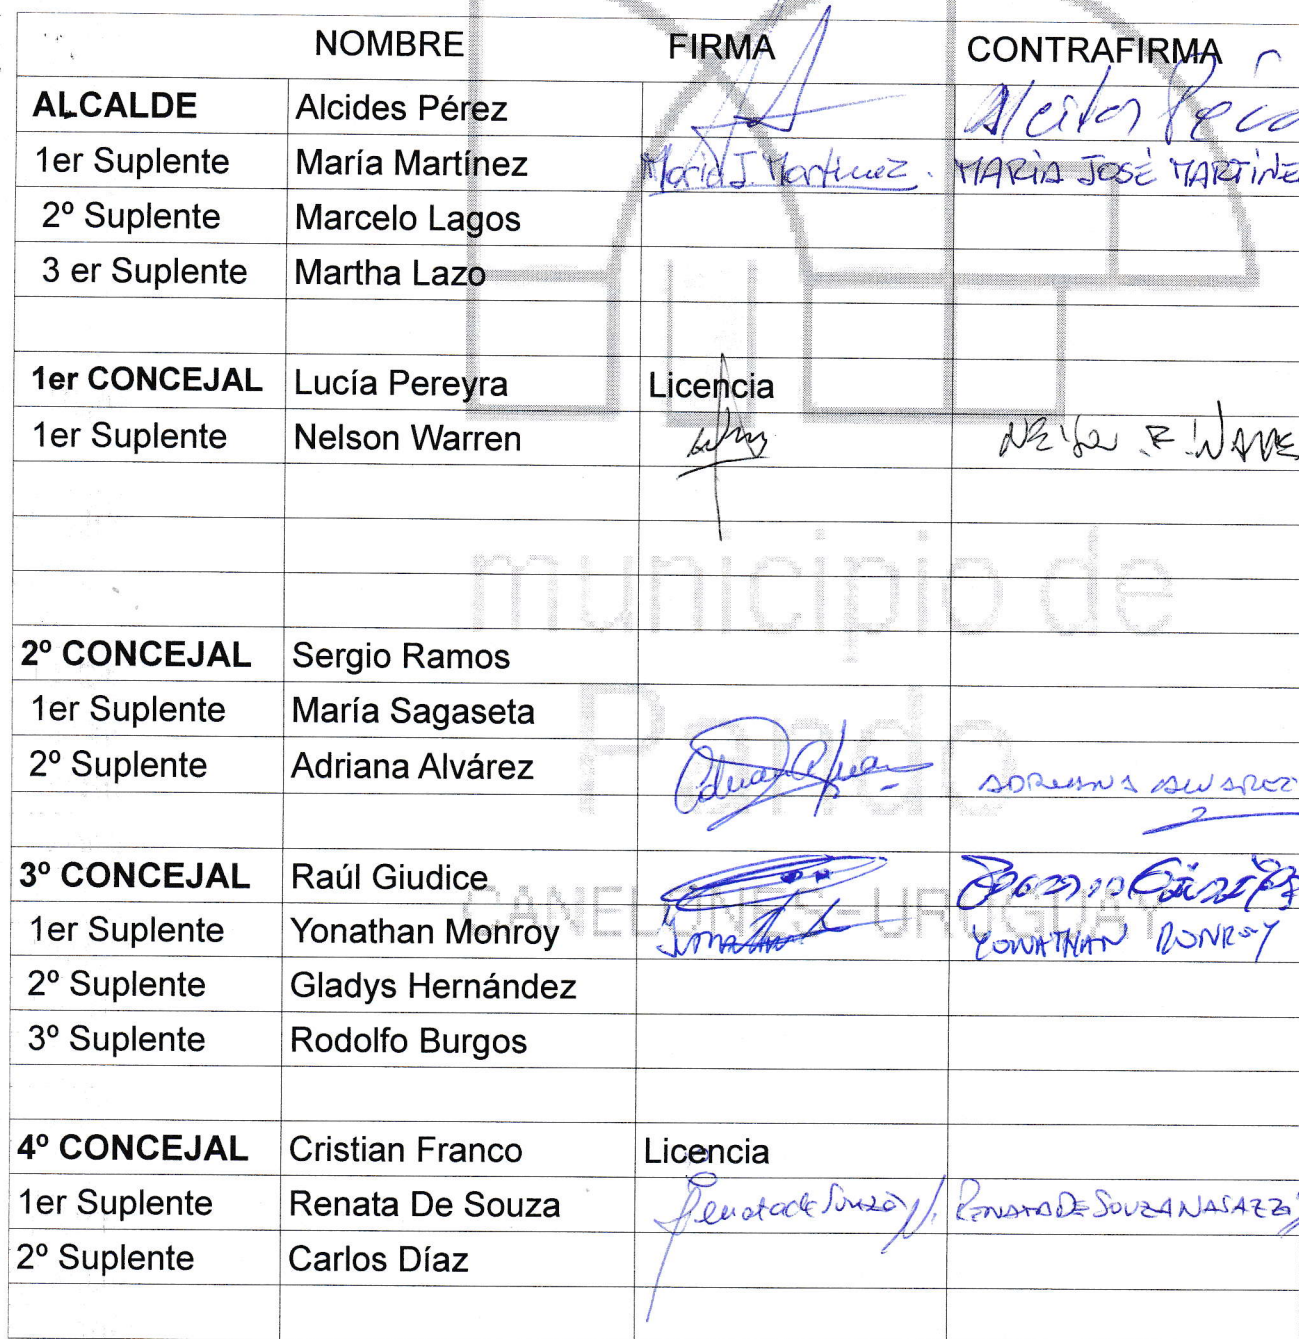 NOMBRE FIRMA CONTRAFIRMA
ALCALDE Alcides Pérez
1er Suplente María Martínez María J. Martínez. MARÍA JOSÉ MARTÍNE
2º Suplente Marcelo Lagos
3 er Suplente Martha Lazo
1er CONCEJAL Lucía Pereyra Licencia
1er Suplente Nelson Warren
municipio de
2º CONCEJAL Sergio Ramos
1er Suplente María Sagaseta
Pando
2º Suplente Adriana Alvárez ADRIANA ALVAREZ
3º CONCEJAL Raúl Giudice
CANELONES-URUGUAY
1er Suplente Yonathan Monroy YONATHAN MONROY
2º Suplente Gladys Hernández
3º Suplente Rodolfo Burgos
4º CONCEJAL Cristian Franco Licencia
1er Suplente Renata De Souza Renata de Souza N. RENATA DE SOUZA NASAZZI
2º Suplente Carlos Díaz